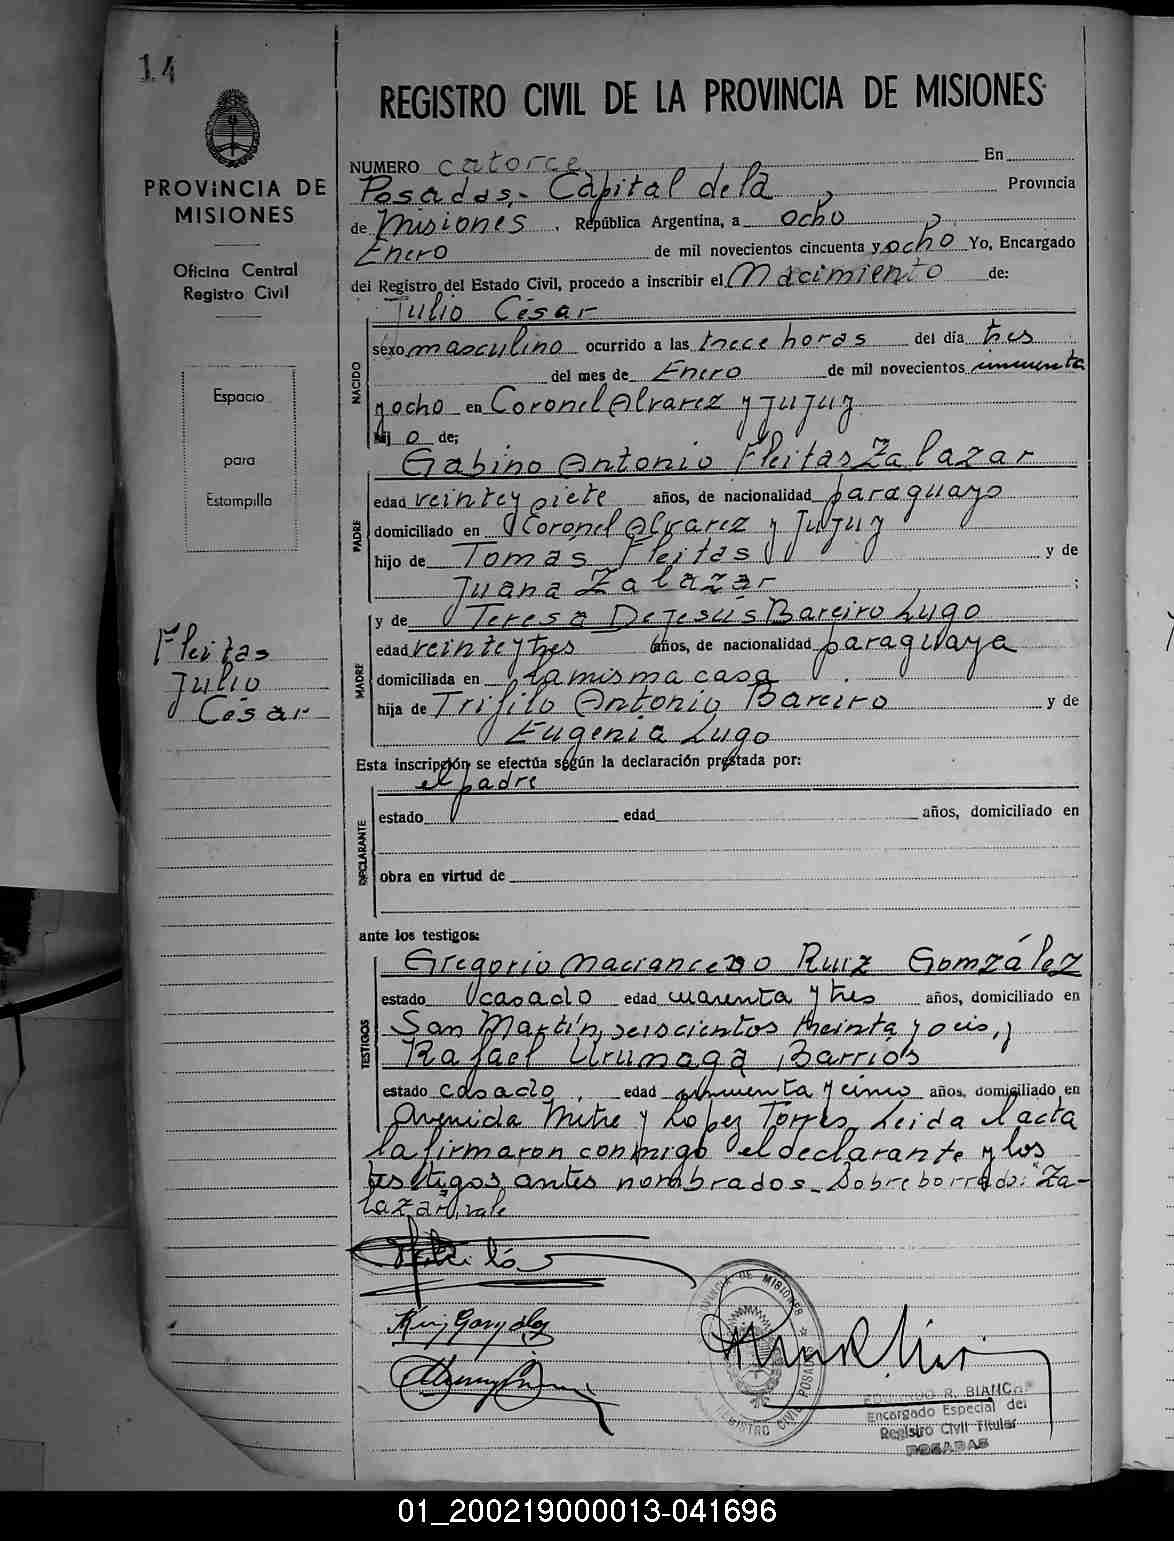 14
PROVINCIA DE
MISIONES
Oficina Central
Registro Civil
Espacio
para
Estampilla
Fleitas
Julio
César
REGISTRO CIVIL DE LA PROVINCIA DE MISIONES
NUMERO catorce En
Posadas.- Capital de la Provincia
de Misiones, República Argentina, a ocho
Enero de mil novecientos cincuenta y ocho Yo, Encargado
del Registro del Estado Civil, procedo a inscribir el Nacimiento de:
Julio César
NACIDO
sexo masculino ocurrido a las trece horas del día tres
del mes de Enero de mil novecientos cincuenta
y ocho en Coronel Alvarez y Jujuy
hijo de;
Gabino Antonio Fleitas Zalazar
PADRE
edad veinte y siete años, de nacionalidad paraguayo
domiciliado en Coronel Alvarez y Jujuy
hijo de Tomas Fleitas y de
Juana Zalazar ;
y de Teresa De Jesús Bareiro Lugo
MADRE
edad veinte y tres años, de nacionalidad paraguaya
domiciliada en la misma casa
hija de Trifilo Antonio Bareiro y de
Eugenia Lugo
Esta inscripción se efectúa según la declaración prestada por:
el padre
DECLARANTE
estado edad años, domiciliado en
obra en virtud de
ante los testigos:
Gregorio Ruiz González
TESTIGOS
estado casado edad cuarenta y tres años, domiciliado en
San Martín, seiscientos treinta y seis, y
Rafael Barrios
estado casado, edad cincuenta y cinco años, domiciliado en
Avenida Mitre y Lopez Torres. Leida el acta
la firmaron conmigo el declarante y los
testigos antes nombrados - Sobreborrado: "Za-
lazar", vale
Ruiz González
PROVINCIA DE MISIONES
REGISTRO CIVIL POSADAS
R. BIANCHI
Encargado Especial del
Registro Civil Titular
POSADAS
01_200219000013-041696